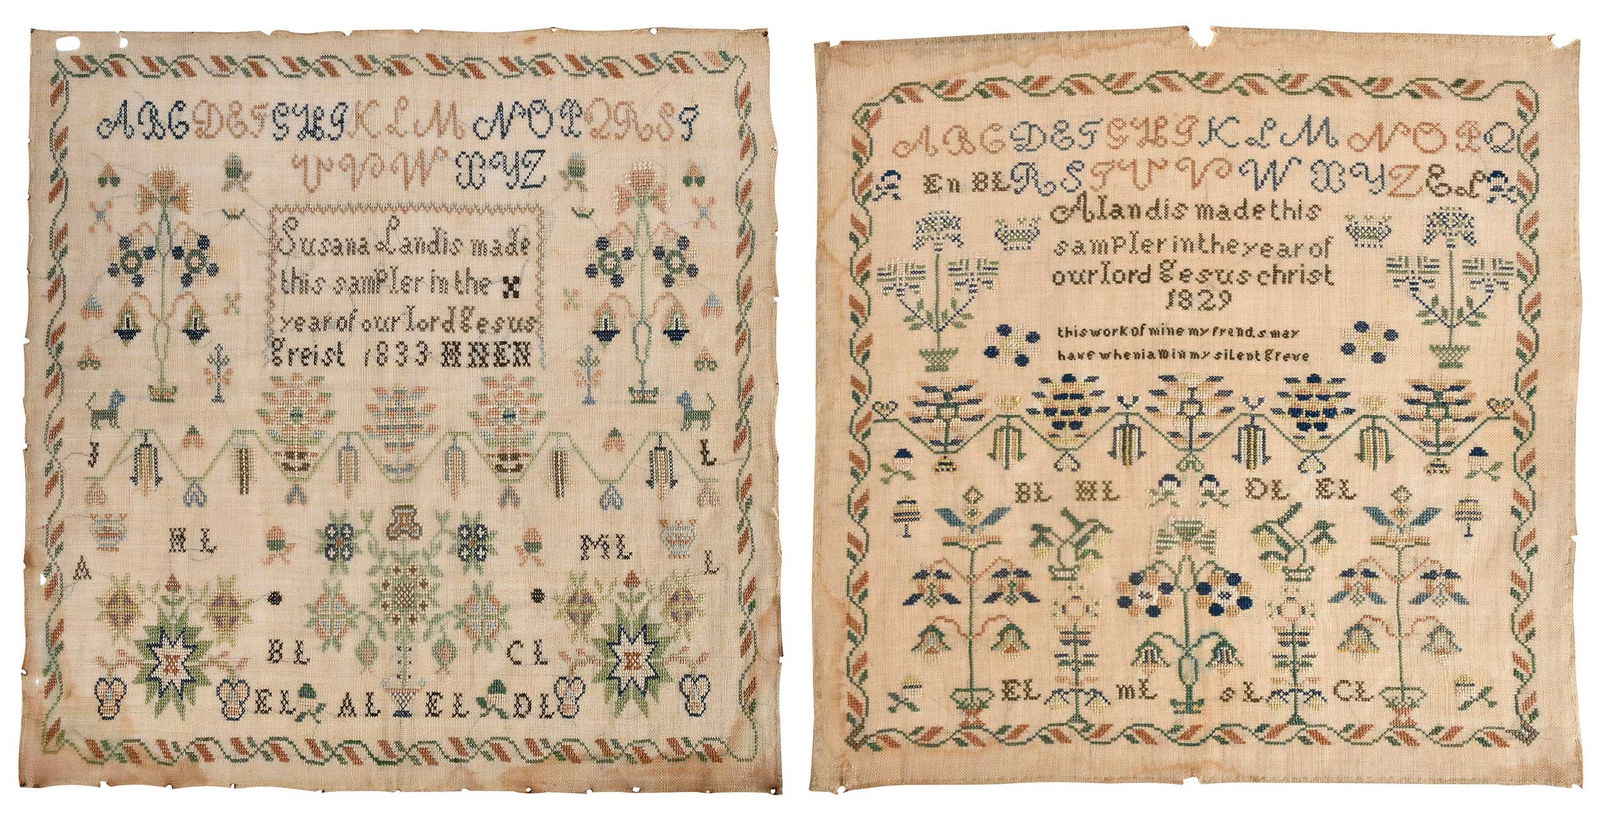 A B C D E F G H I K L M N O P Q R S T
U V W X Y Z
Susana Landis made
this sampler in the
year of our lord Gesus
Greist 1833 HNEN
J L
H L M L
A L
B L C L
E L A L E L D L
A B C D E F G H I K L M N O P Q
En BL R S T U V W X Y Z E L
A landis made this
sampler in the year of
our lord Gesus christ
1829
this work of mine my frend.s may
have when i a m in my silent greve
BL HL DL EL
EL mL s L CL